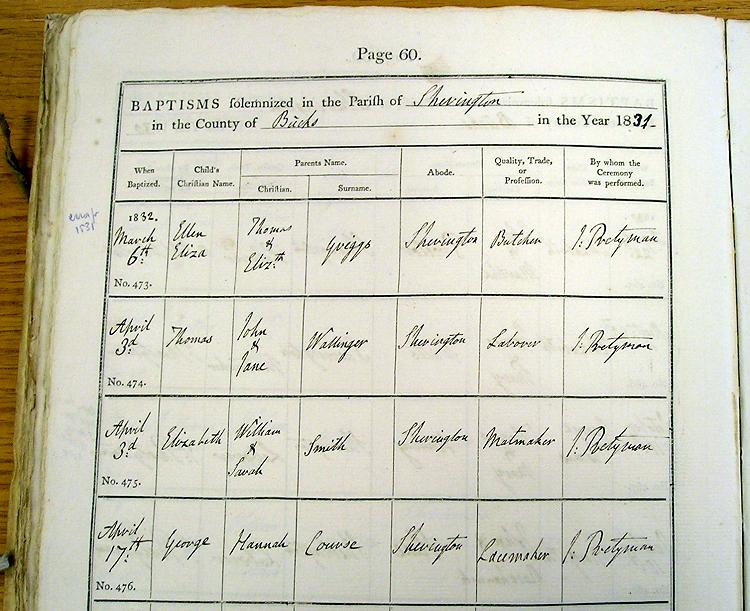 Page 60.
BAPTISMS solemnized in the Parish of Sherington
in the County of Bucks in the Year 1831
When Baptized.
Child's Christian Name.
Parents Name.
Christian.
Surname.
Abode.
Quality, Trade, or Profession.
By whom the Ceremony was performed.
1832.
March 6th
No. 473.
Ellen Eliza
Thomas & Elizth
Griggs
Sherington
Butcher
J: Pretyman
April 3d
No. 474.
Thomas
John & Jane
Wallinger
Sherington
Labourer
J: Pretyman
April 3d
No. 475.
Elizabeth
William & Sarah
Smith
Sherington
Matmaker
J: Pretyman
April 17th
No. 476.
George
Hannah
Course
Sherington
Lacemaker
J: Pretyman